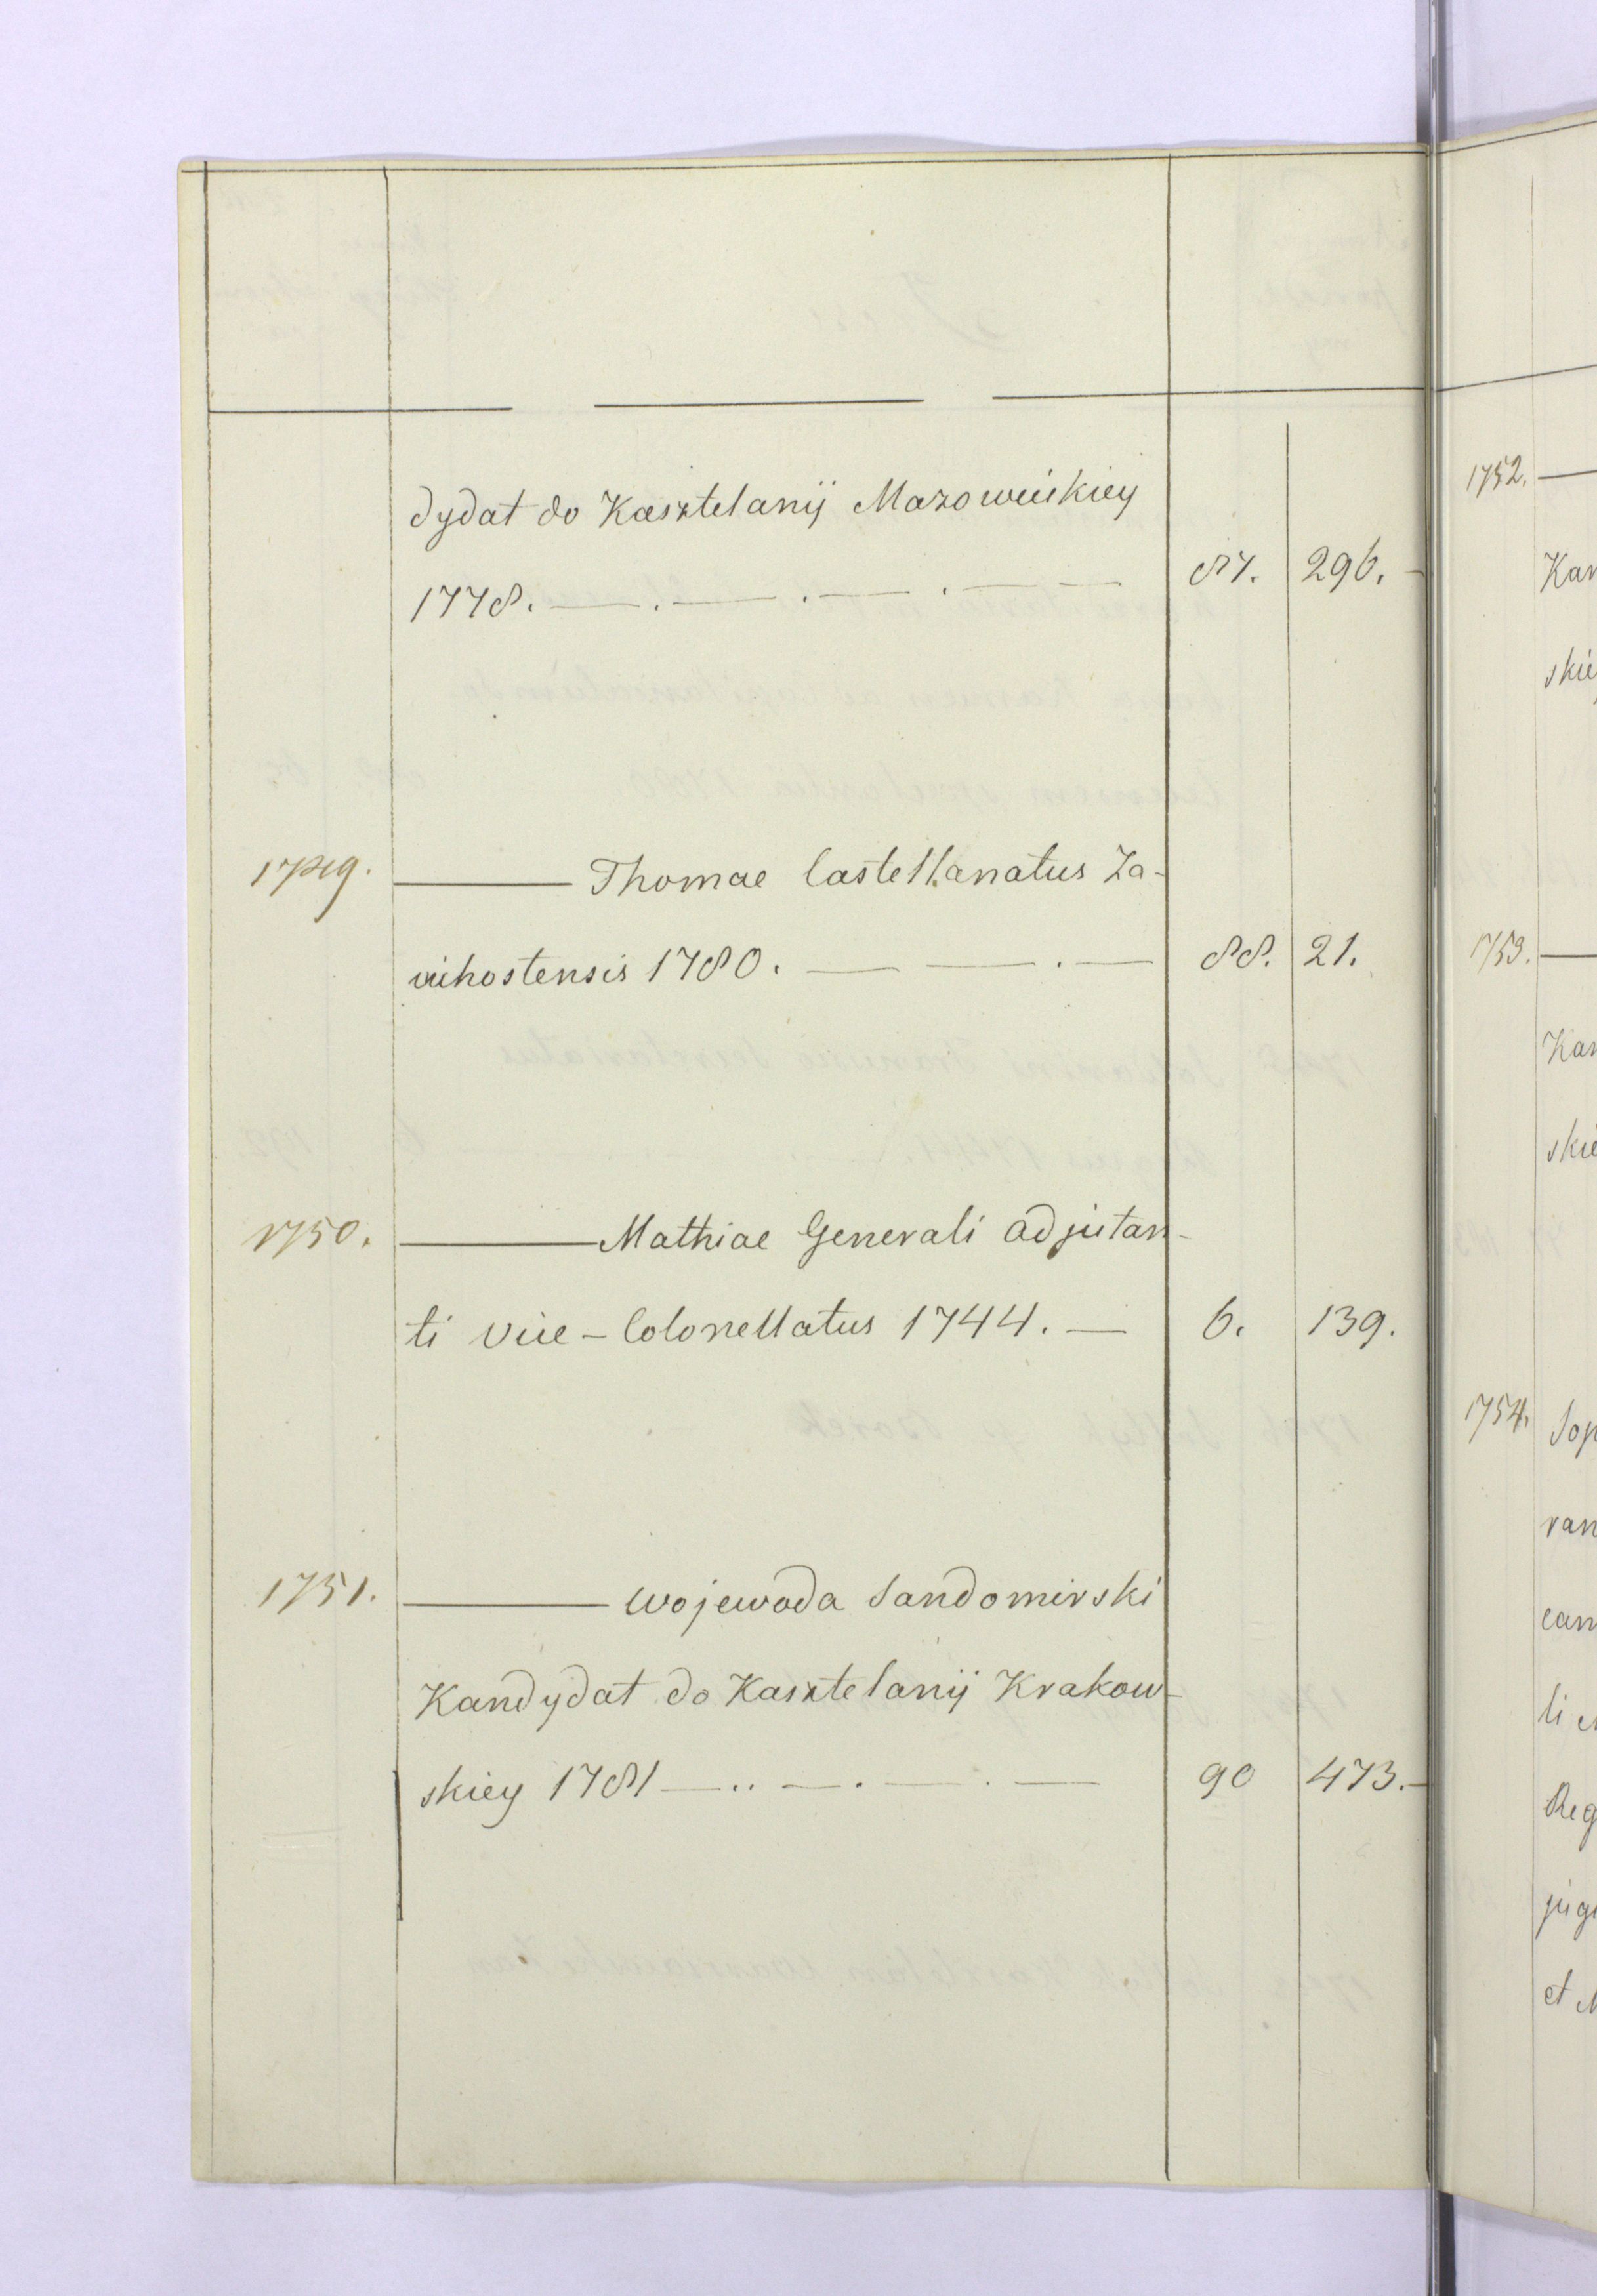 dydat do Kasztelanij Mazowieckiey
1778. — . — . — . — — 87. 296. -
1749. ——— Thomae Castellanatus Za-
vichostensis 1780. — — . — 88. 21.
1750. ——— Mathiae Generali adjutan-
ti Vice-Colonellatus 1744. — 6. 139.
1751. ——— Wojewoda Sandomirski
Kandydat do Kasztelanij Krakow-
skiey 1781 — .. — . — . — 90 473. -
1752. —
Kan
skie
1753. —
Kan
skie
1754. Sop
ran
can
li
Reg
jug
et